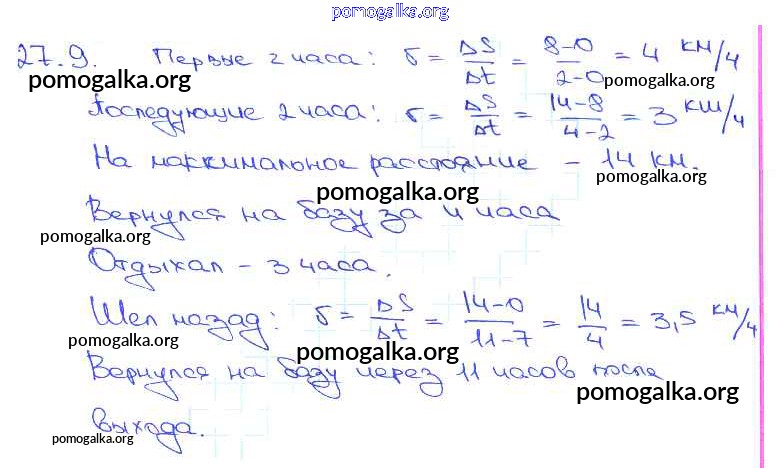 pomogalka.org
27.9. Первые 2 часа: v = ΔS/Δt = 8-0/2-0 = 4 км/ч
pomogalka.org pomogalka.org
Последующие 2 часа: v = ΔS/Δt = 14-8/4-2 = 3 км/ч
На максимальное расстояние - 14 км.
pomogalka.org pomogalka.org
Вернулся на базу за 4 часа
pomogalka.org
Отдыхал - 3 часа.
Шел назад: v = ΔS/Δt = 14-0/11-7 = 14/4 = 3,5 км/ч
pomogalka.org pomogalka.org
Вернулся на базу через 11 часов после
pomogalka.org
выхода.
pomogalka.org